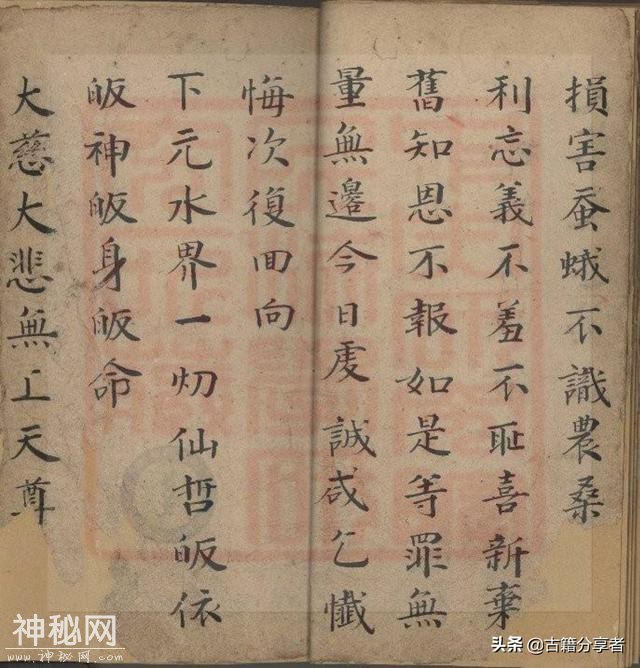 損害蚕蛾不識農桑
利忘義不羞不耻喜新棄
舊知恩不報如是等罪無
量無邊今日虔誠咸乞懴
悔次復回向
下元水界一切仙哲皈依
皈神皈身皈命
大慈大悲無上天尊
神秘网
www.神秘网.com
头条 @古籍分享者